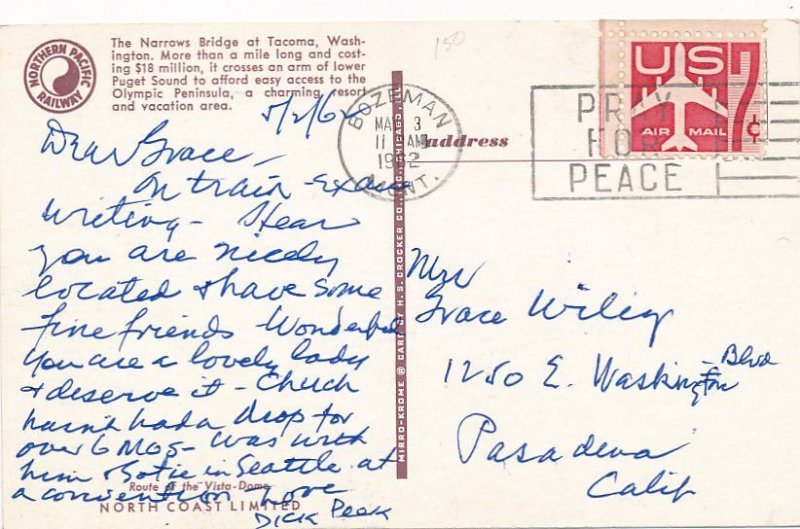 NORTHERN PACIFIC
RAILWAY
The Narrows Bridge at Tacoma, Wash-
ington. More than a mile long and cost-
ing $18 million, it crosses an arm of lower
Puget Sound to afford easy access to the
Olympic Peninsula, a charming resort
and vacation area.
150
5/2/62
Dear Grace –
On train – Excuse
writing – Hear
you are nicely
located & have some
fine friends Wonderful
You are a lovely lady
& deserve it – Chuck
hasn't had a drop for
over 6 mos – was with
him & in Seattle at
a convention – Love
Dick Peak
Route of the Vista-Dome
NORTH COAST LIMITED
MIRRO-KROME ® CARD BY H. S. CROCKER CO., INC., CHICAGO, ILL.
BOZEMAN
MAY 3
11 AM
1962
MONT.
PRAY
FOR
PEACE
US
AIR MAIL
7¢
address
Mrs
Grace Wiley
1250 E. Washington Blvd
Pasadena
Calif